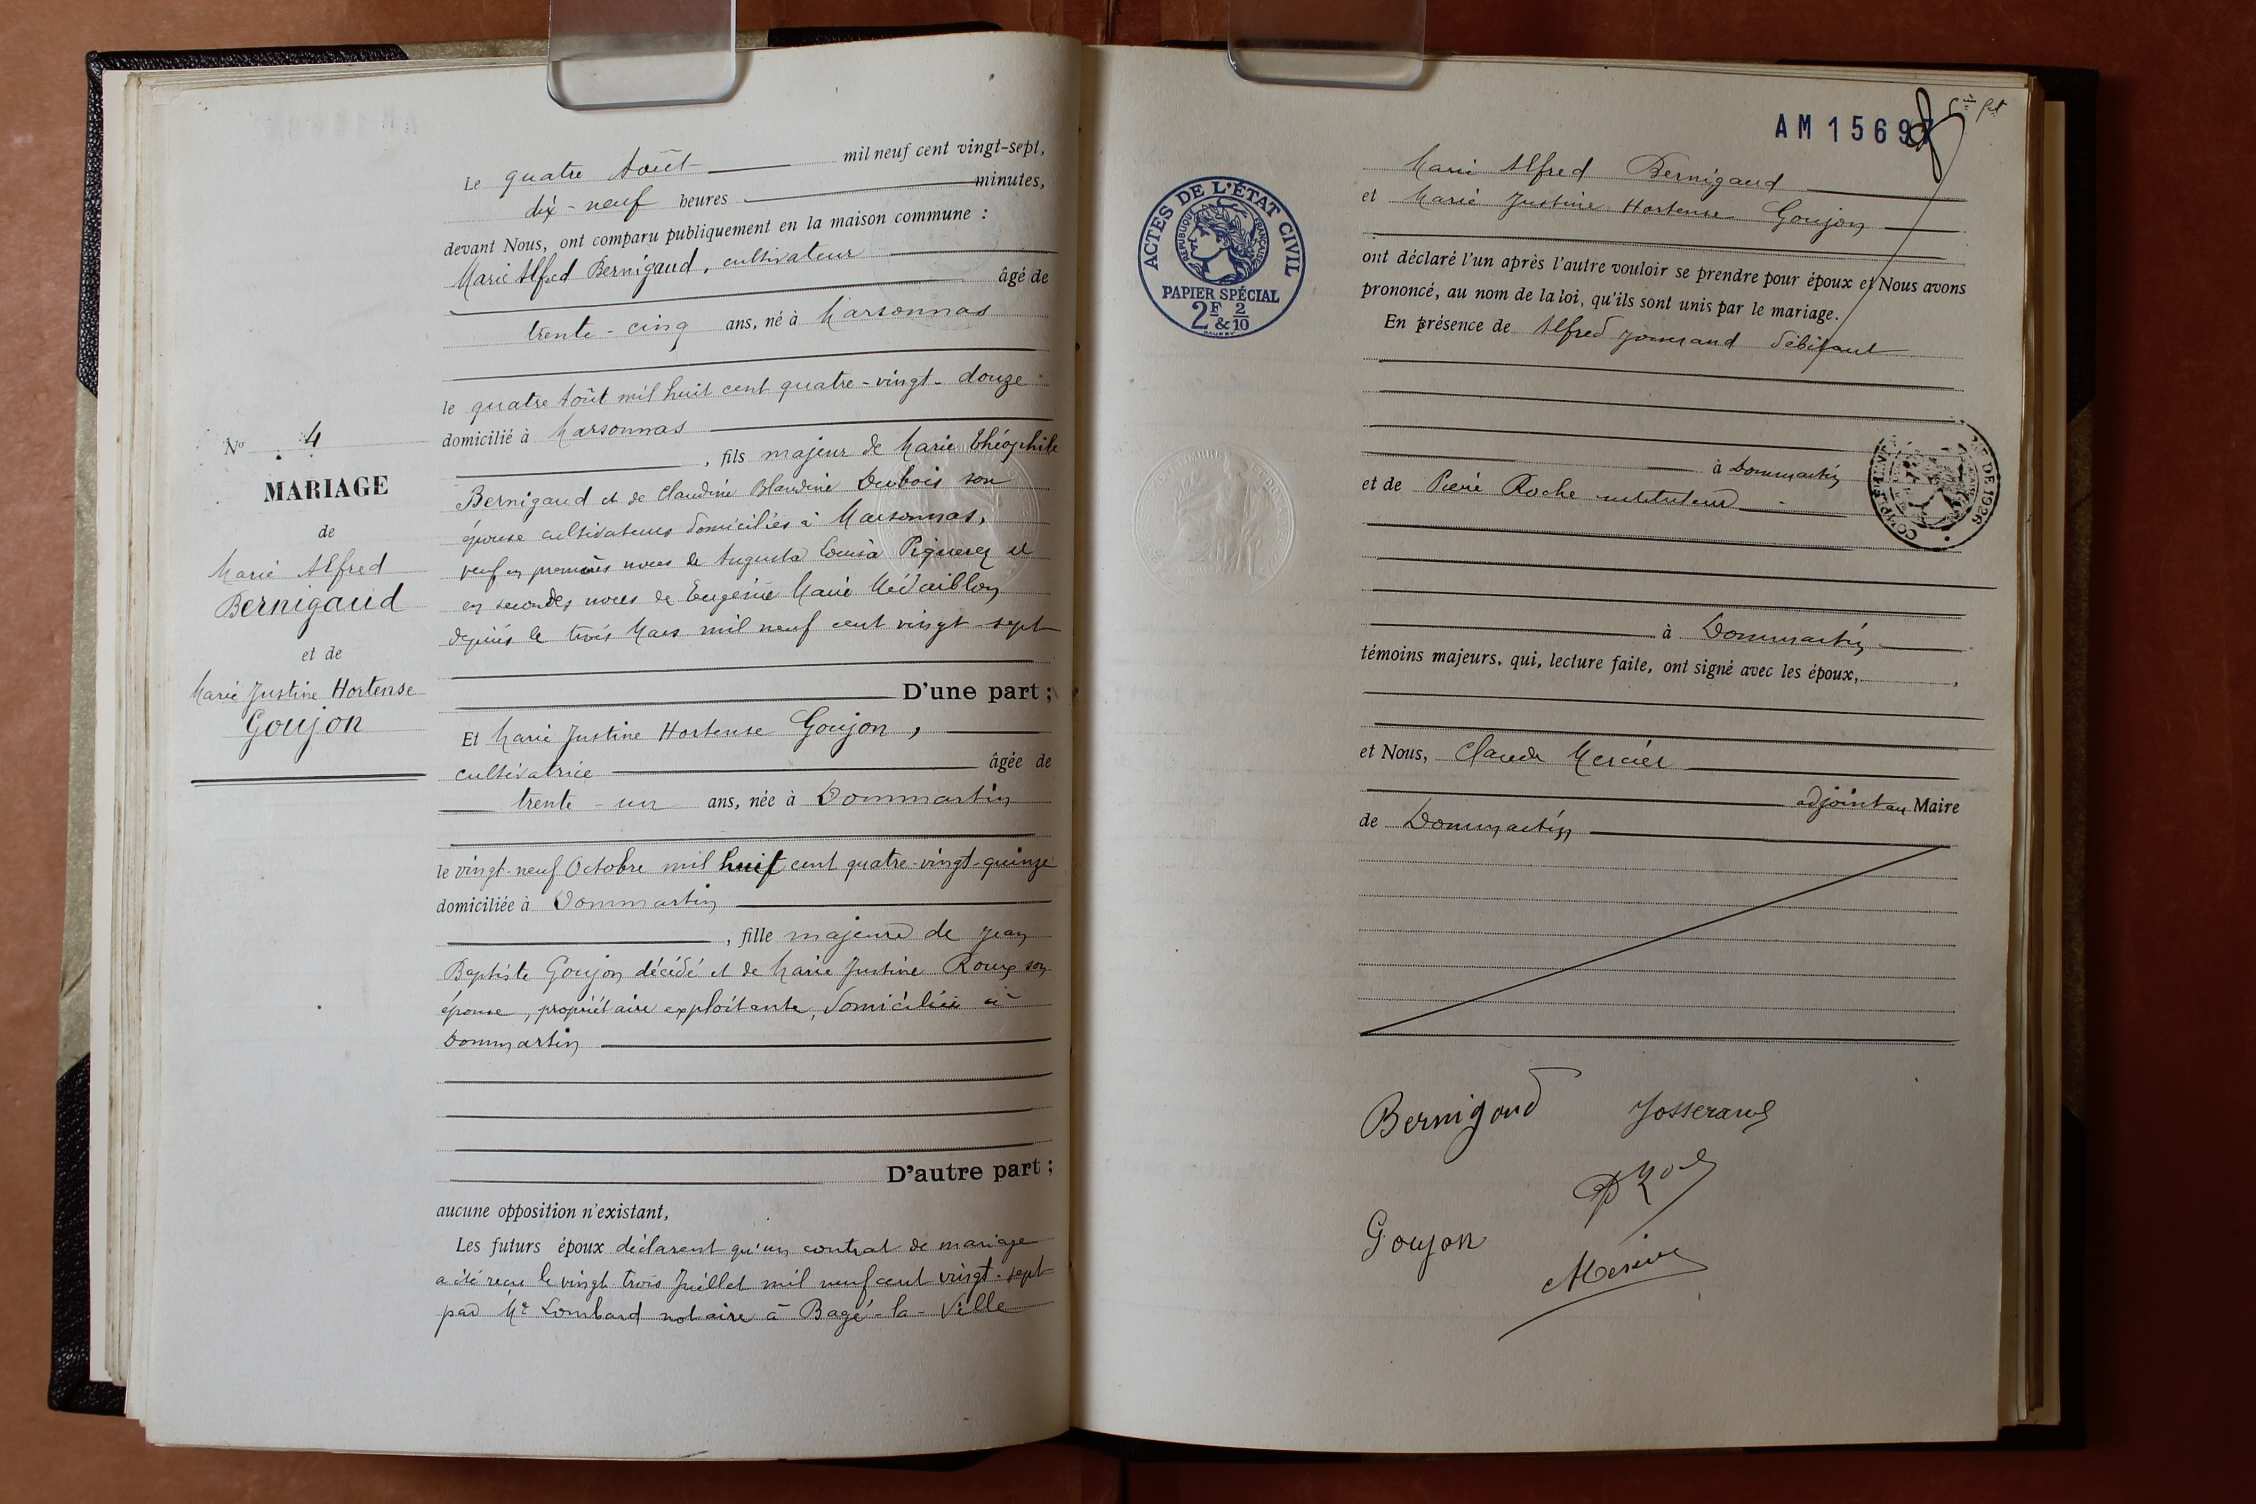 Le quatre Août mil neuf cent vingt-sept,
dix-neuf heures minutes,
devant Nous, ont comparu publiquement en la maison commune :
Marie Alfred Bernigaud, cultivateur
âgé de
trente-cinq ans, né à Marsonnas
le quatre Août mil huit cent quatre-vingt-douze
domicilié à Marsonnas
, fils majeur de Marie Théophile
Bernigaud et de Claudine Blandine Dubois son
épouse cultivateurs domiciliés à Marsonnas,
veuf en premières noces de Augusta Louisa Piquerez et
en secondes noces de Eugénie Marie Médaillon
depuis le trois Mars mil neuf cent vingt-sept
D'une part ;
No 4
MARIAGE
de
Marie Alfred
Bernigaud
et de
Marie Justine Hortense
Goujon
Et Marie Justine Hortense Goujon,
cultivatrice âgée de
trente-un ans, née à Dommartin
le vingt-neuf Octobre mil huit cent quatre-vingt-quinze
domiciliée à Dommartin
, fille majeure de Jean
Baptiste Goujon décédé et de Marie Justine Roux son
épouse, propriétaire exploitante, domiciliée à
Dommartin
D'autre part ;
aucune opposition n'existant,
Les futurs époux déclarent qu'un contrat de mariage
a été reçu le vingt trois Juillet mil neuf cent vingt-sept
par Me Lombard notaire à Bagé-la-Ville
AM 15697
ACTES DE L'ÉTAT CIVIL
RÉPUBLIQUE FRANÇAISE
PAPIER SPÉCIAL
2F & 2/10
Marie Alfred Bernigaud
et Marie Justine Hortense Goujon
ont déclaré l'un après l'autre vouloir se prendre pour époux et Nous avons
prononcé, au nom de la loi, qu'ils sont unis par le mariage.
En présence de Alfred Josserand débitant
à Dommartin
et de Pierre Roche instituteur
à Dommartin
témoins majeurs, qui, lecture faite, ont signé avec les époux,
et Nous, Claude Mercier
adjoint au Maire
de Dommartin
Bernigaud Josserand
Goujon
Mercier